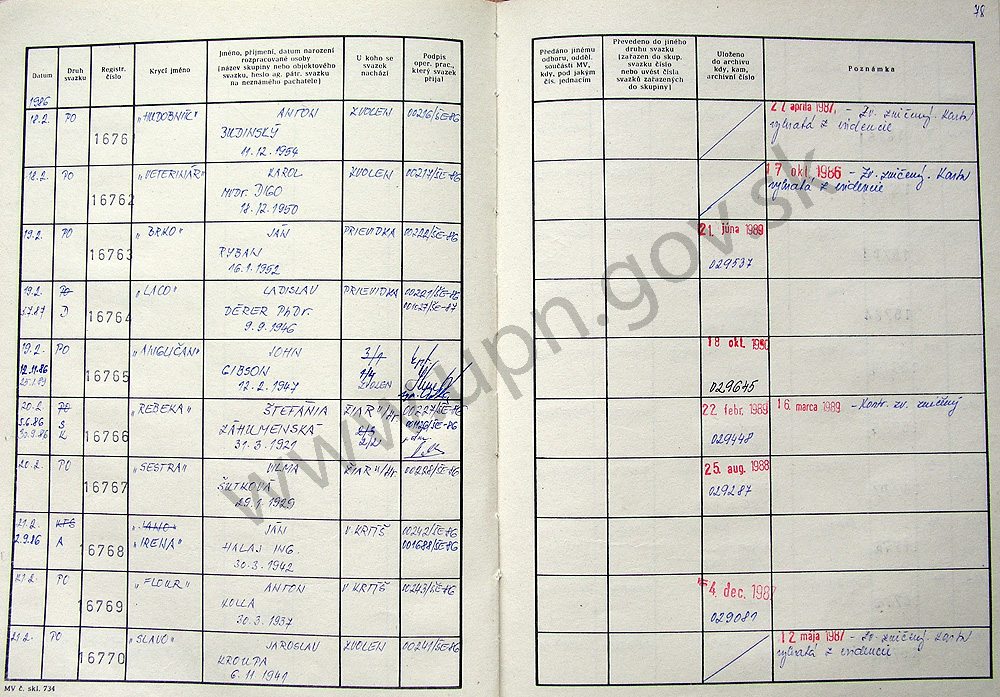 78
Datum
Druh svazku
Registr. číslo
Krycí jméno
Jméno, příjmení, datum narození
rozpracované osoby
(název skupiny nebo objektového
svazku, heslo ag. pátr. svazku
na neznámého pachatele)
U koho se
svazek
nachází
Podpis
oper. prac.,
který svazek
přijal
Předáno jinému
odboru, odděl.
součásti MV,
kdy, pod jakým
čís. jednacím
Převedeno do jiného
druhu svazku
(zařazen do skup.
svazku číslo
nebo uvést čísla
svazků zařazených
do skupiny)
Uloženo
do archivu
kdy, kam,
archivní číslo
Poznámka
1986
18.2. PO 16761 „HUDOBNÍK" ANTON ZVOLEN 00216/ŠE-86 27. apríla 1987, - Zv. zničený. Karta
BUDINSKÝ vybratá z evidencie
11.12.1954
18.2. PO 16762 „VETERINÁR" KAROL ZVOLEN 00217/ŠE-86 17 okt. 1986 - Zv. zničený. Karta
MVDr. DIGO vybratá z evidencie
18.12.1950
19.2. PO 16763 „BRKO" JÁN PRIEVIDZA 00222/ŠE-86 21. júna 1989
RYBAN 029537
16.1.1952
19.2. PO 16764 „LACO" LADISLAV PRIEVIDZA 00221/ŠE-86
3.7.87 D DÉRER PhDr.
9.9.1946
19.2. PO 16765 „ANGLIČAN" JOHN 3/1 18 okt. 1990
12.11.86 GIBSON 1/4 029645
12.2.1947 ZVOLEN
20.2. PO 16766 „REBEKA" ŠTEFÁNIA ŽIAR n/Hr 00227/ŠE-86 22 febr. 1989 16 marca 1989 - Kontr. zv. zničený
5.6.86 S ZÁHUMENSKÁ 029448
30.9.86 K 31.3.1921 2/2
20.2. PO 16767 „SESTRA" VILMA ŽIAR n/Hr 00228/ŠE-86 25 aug. 1988
ŠUTKOVÁ 029287
29.1.1929
21.2. KTS 16768 „JANO" JÁN V. KRTÍŠ 00242/ŠE-86
2.9.86 A „IRENA" HALAJ ING. 001688/ŠE-86
30.3.1942
21.2. PO 16769 „FLOUR" ANTON V. KRTÍŠ 00243/ŠE-86 4. dec. 1987
KOLLA 029081
30.3.1937
21.2. PO 16770 „SLAVO" JAROSLAV ZVOLEN 00241/ŠE-86 12 mája 1987 - Zv. zničený. Karta
KROUPA vybratá z evidencie
6.11.1941
MV č. skl. 734
www.upn.gov.sk